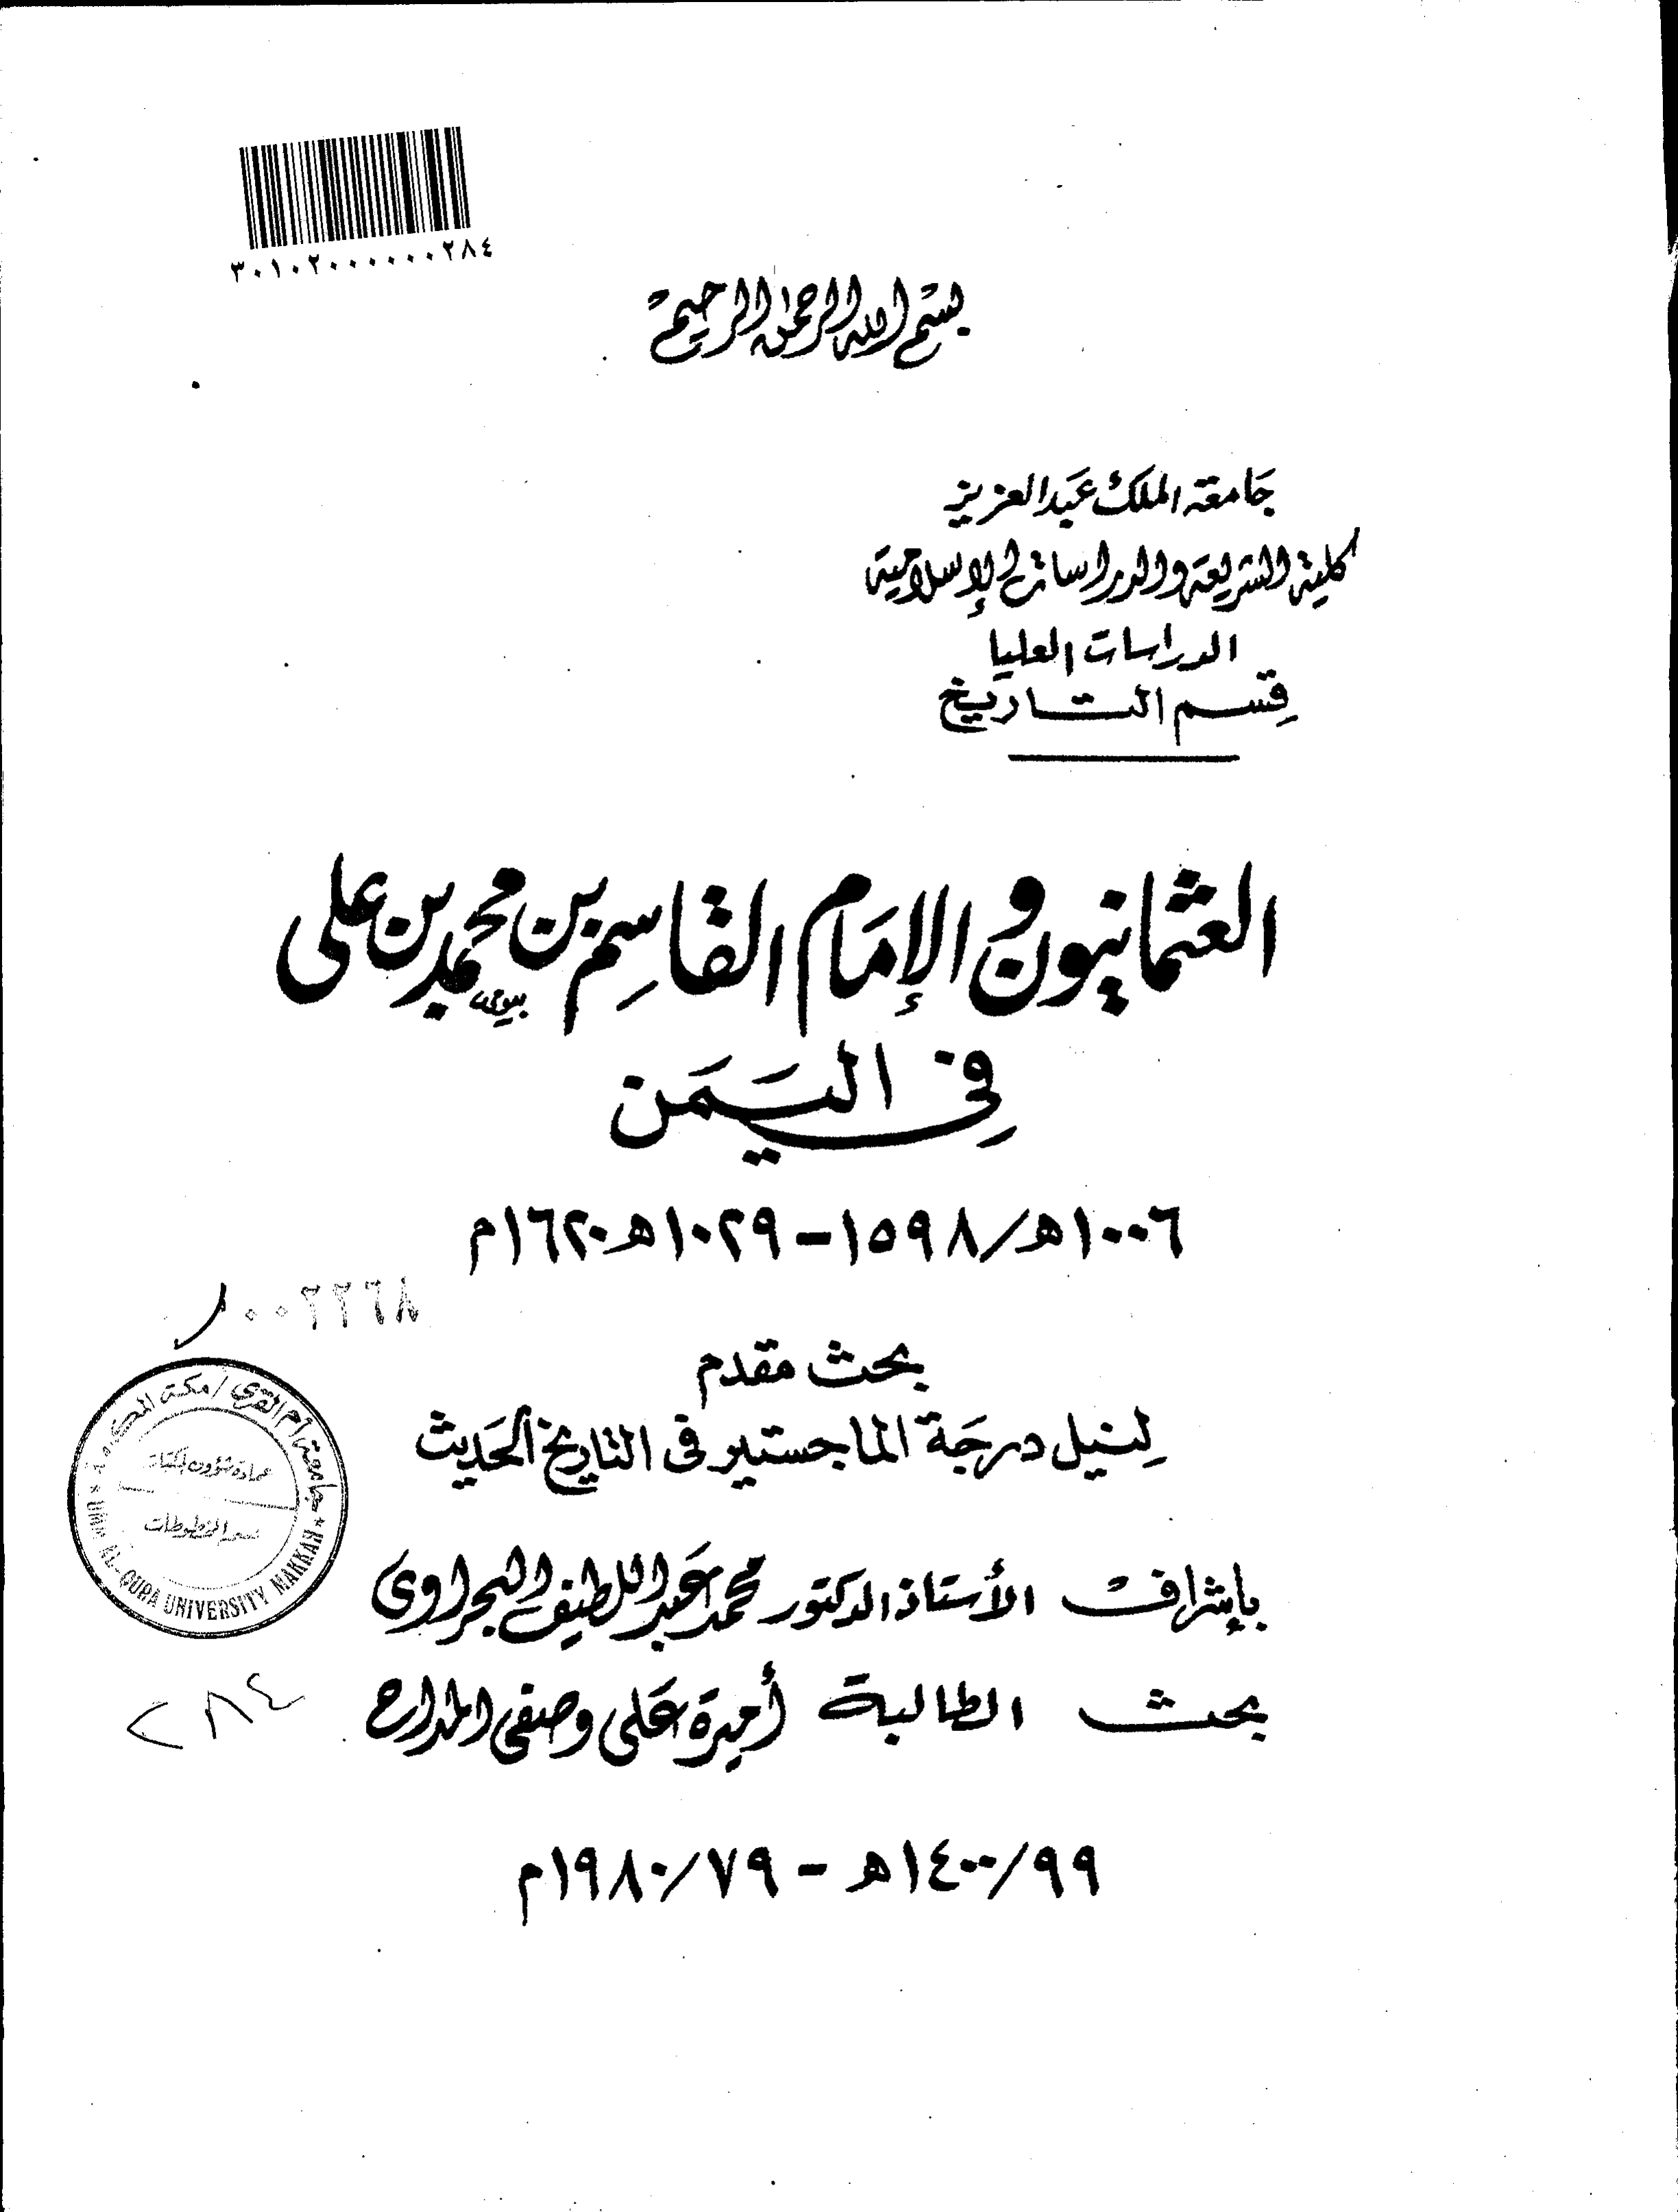 ٣٠١٠٢٠٠٠٠٠٠٢٨٤
بسم الله الرحمن الرحيم
جامعة الملك عبد العزيز
كلية الشريعة والدراسات الإسلامية
الدراسات العليا
قسم التاريخ
العثمانيون والإمام القاسم بن محمد بن علي
في اليمن
١٠٠٦هـ/١٥٩٨-١٠٢٩هـ١٦٢٠م
٠٠٢٢٦٨
بحث مقدم
لنيل درجة الماجستير في التاريخ الحديث
جامعة أم القرى / مكة المكرمة
عمادة شؤون المكتبات
قسم المخطوطات
UMM AL-QURA UNIVERSITY MAKKAH
بإشراف الأستاذ الدكتور محمد عبد اللطيف البحراوى
بحث الطالبة أميرة على وصفى المداح
٢٨٤
٩٩/١٤٠٠هـ - ٧٩/١٩٨٠م